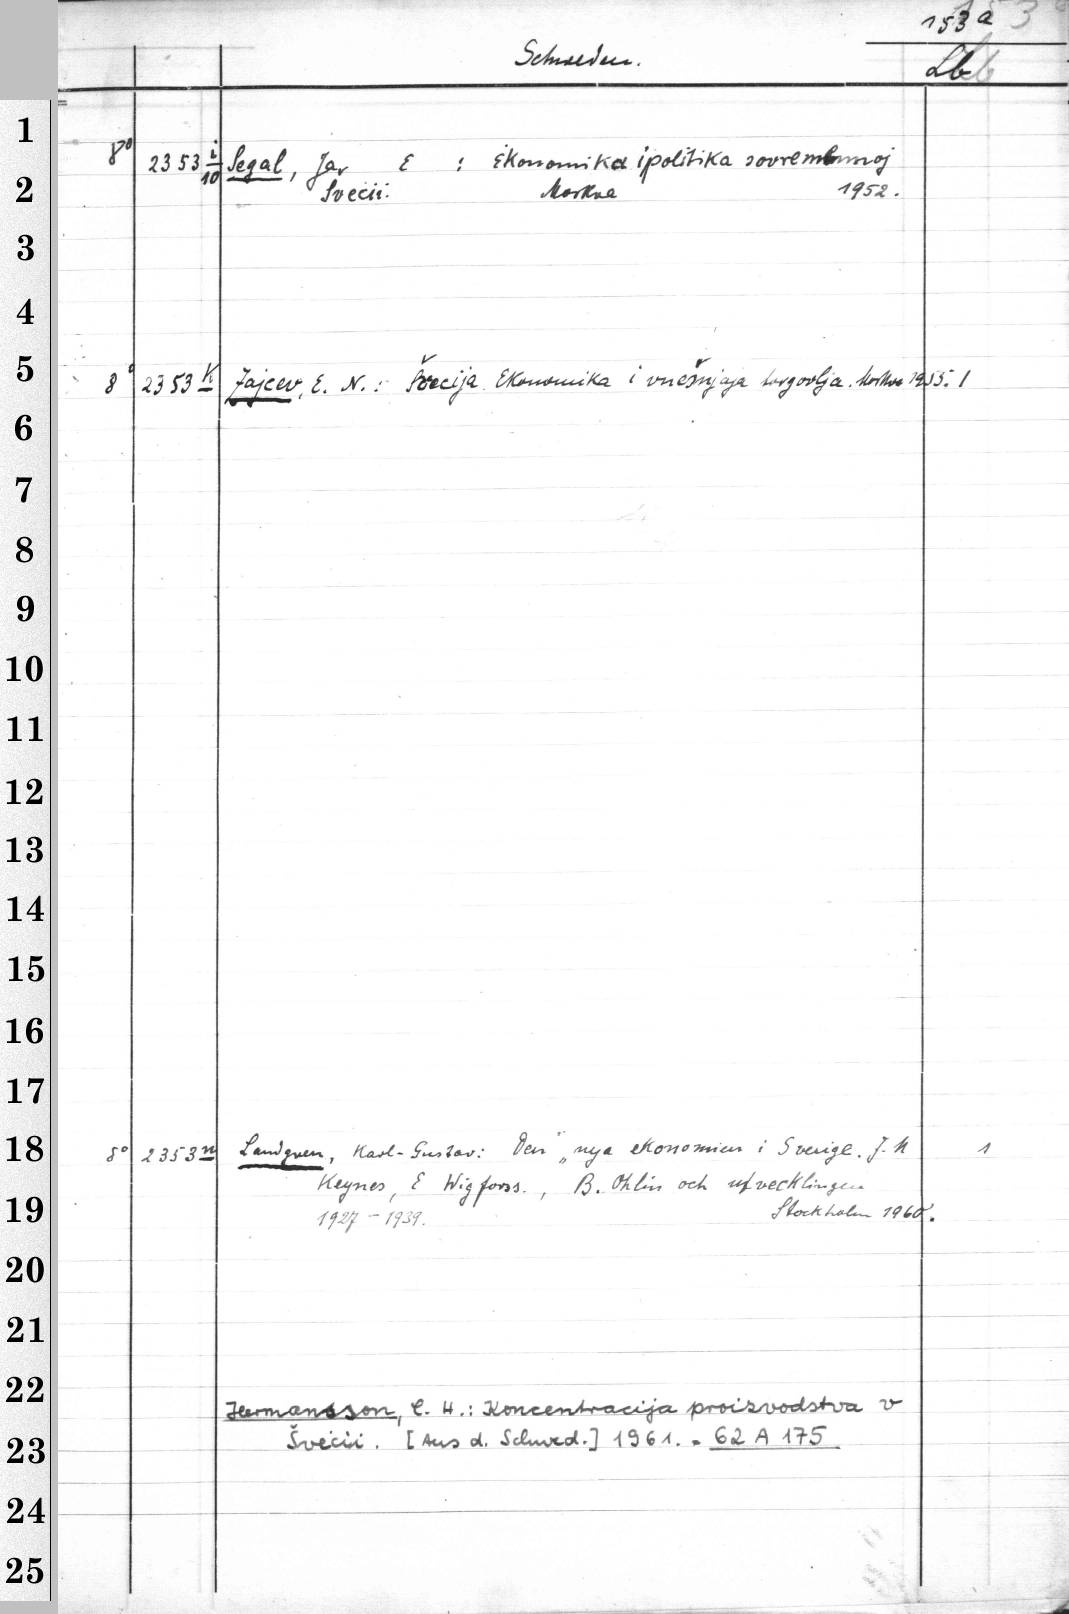 153a
Schweden.
Lb
8° 2353 i/10 Segal, Jar E : Ėkonomika i politika sovremennoj
Švecii. Moskva 1952.
8° 2353 k Zajcev, E. N.: Švecija. Ekonomika i vnešnjaja torgovlja. Moskva 1955. 1
8° 2353 n Landgren, Karl-Gustav: Den „nya ekonomien" i Sverige. J. M 1
Keynes, E Wigforss., B. Ohlin och utvecklingen
1927-1939. Stockholm 1960.
Hermansson, C. H.: Koncentracija proizvodstva v
Švecii. [Aus d. Schwed.] 1961. = 62 A 175
1
2
3
4
5
6
7
8
9
10
11
12
13
14
15
16
17
18
19
20
21
22
23
24
25